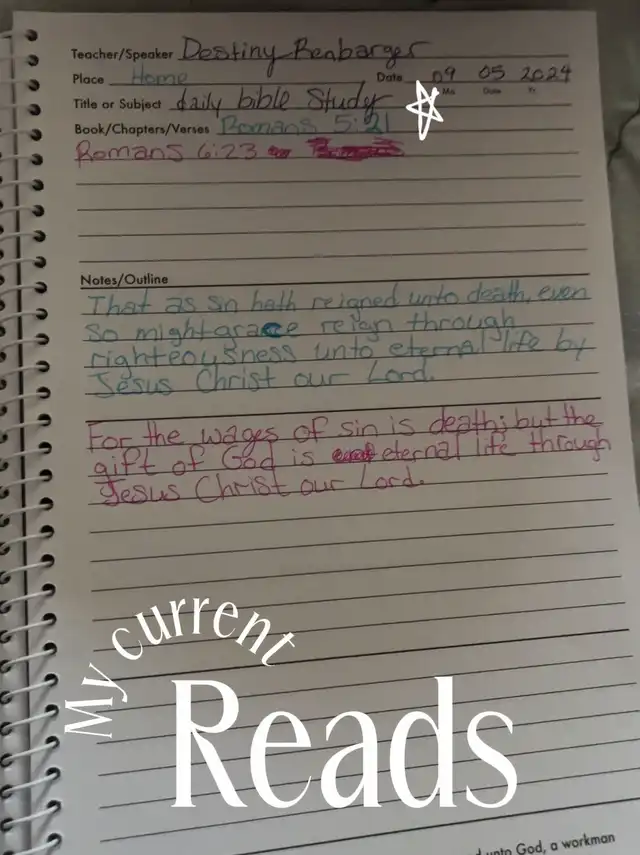 Teacher/Speaker Destiny Renbarger
Place Home Date 09 05 2024
Mo Date Yr
Title or Subject daily bible Study
Book/Chapters/Verses Romans 5:21
Romans 6:23
Notes/Outline
That as sin hath reigned unto death, even
so might grace reign through
righteousness unto eternal life by
Jesus Christ our Lord.
For the wages of sin is death; but the
gift of God is eternal life through
Jesus Christ our Lord.
My current
Reads
unto God, a workman